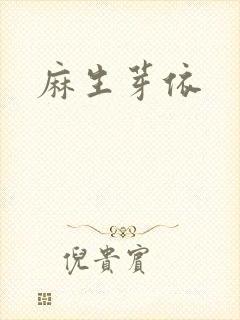 麻生芽依
倪貴賓